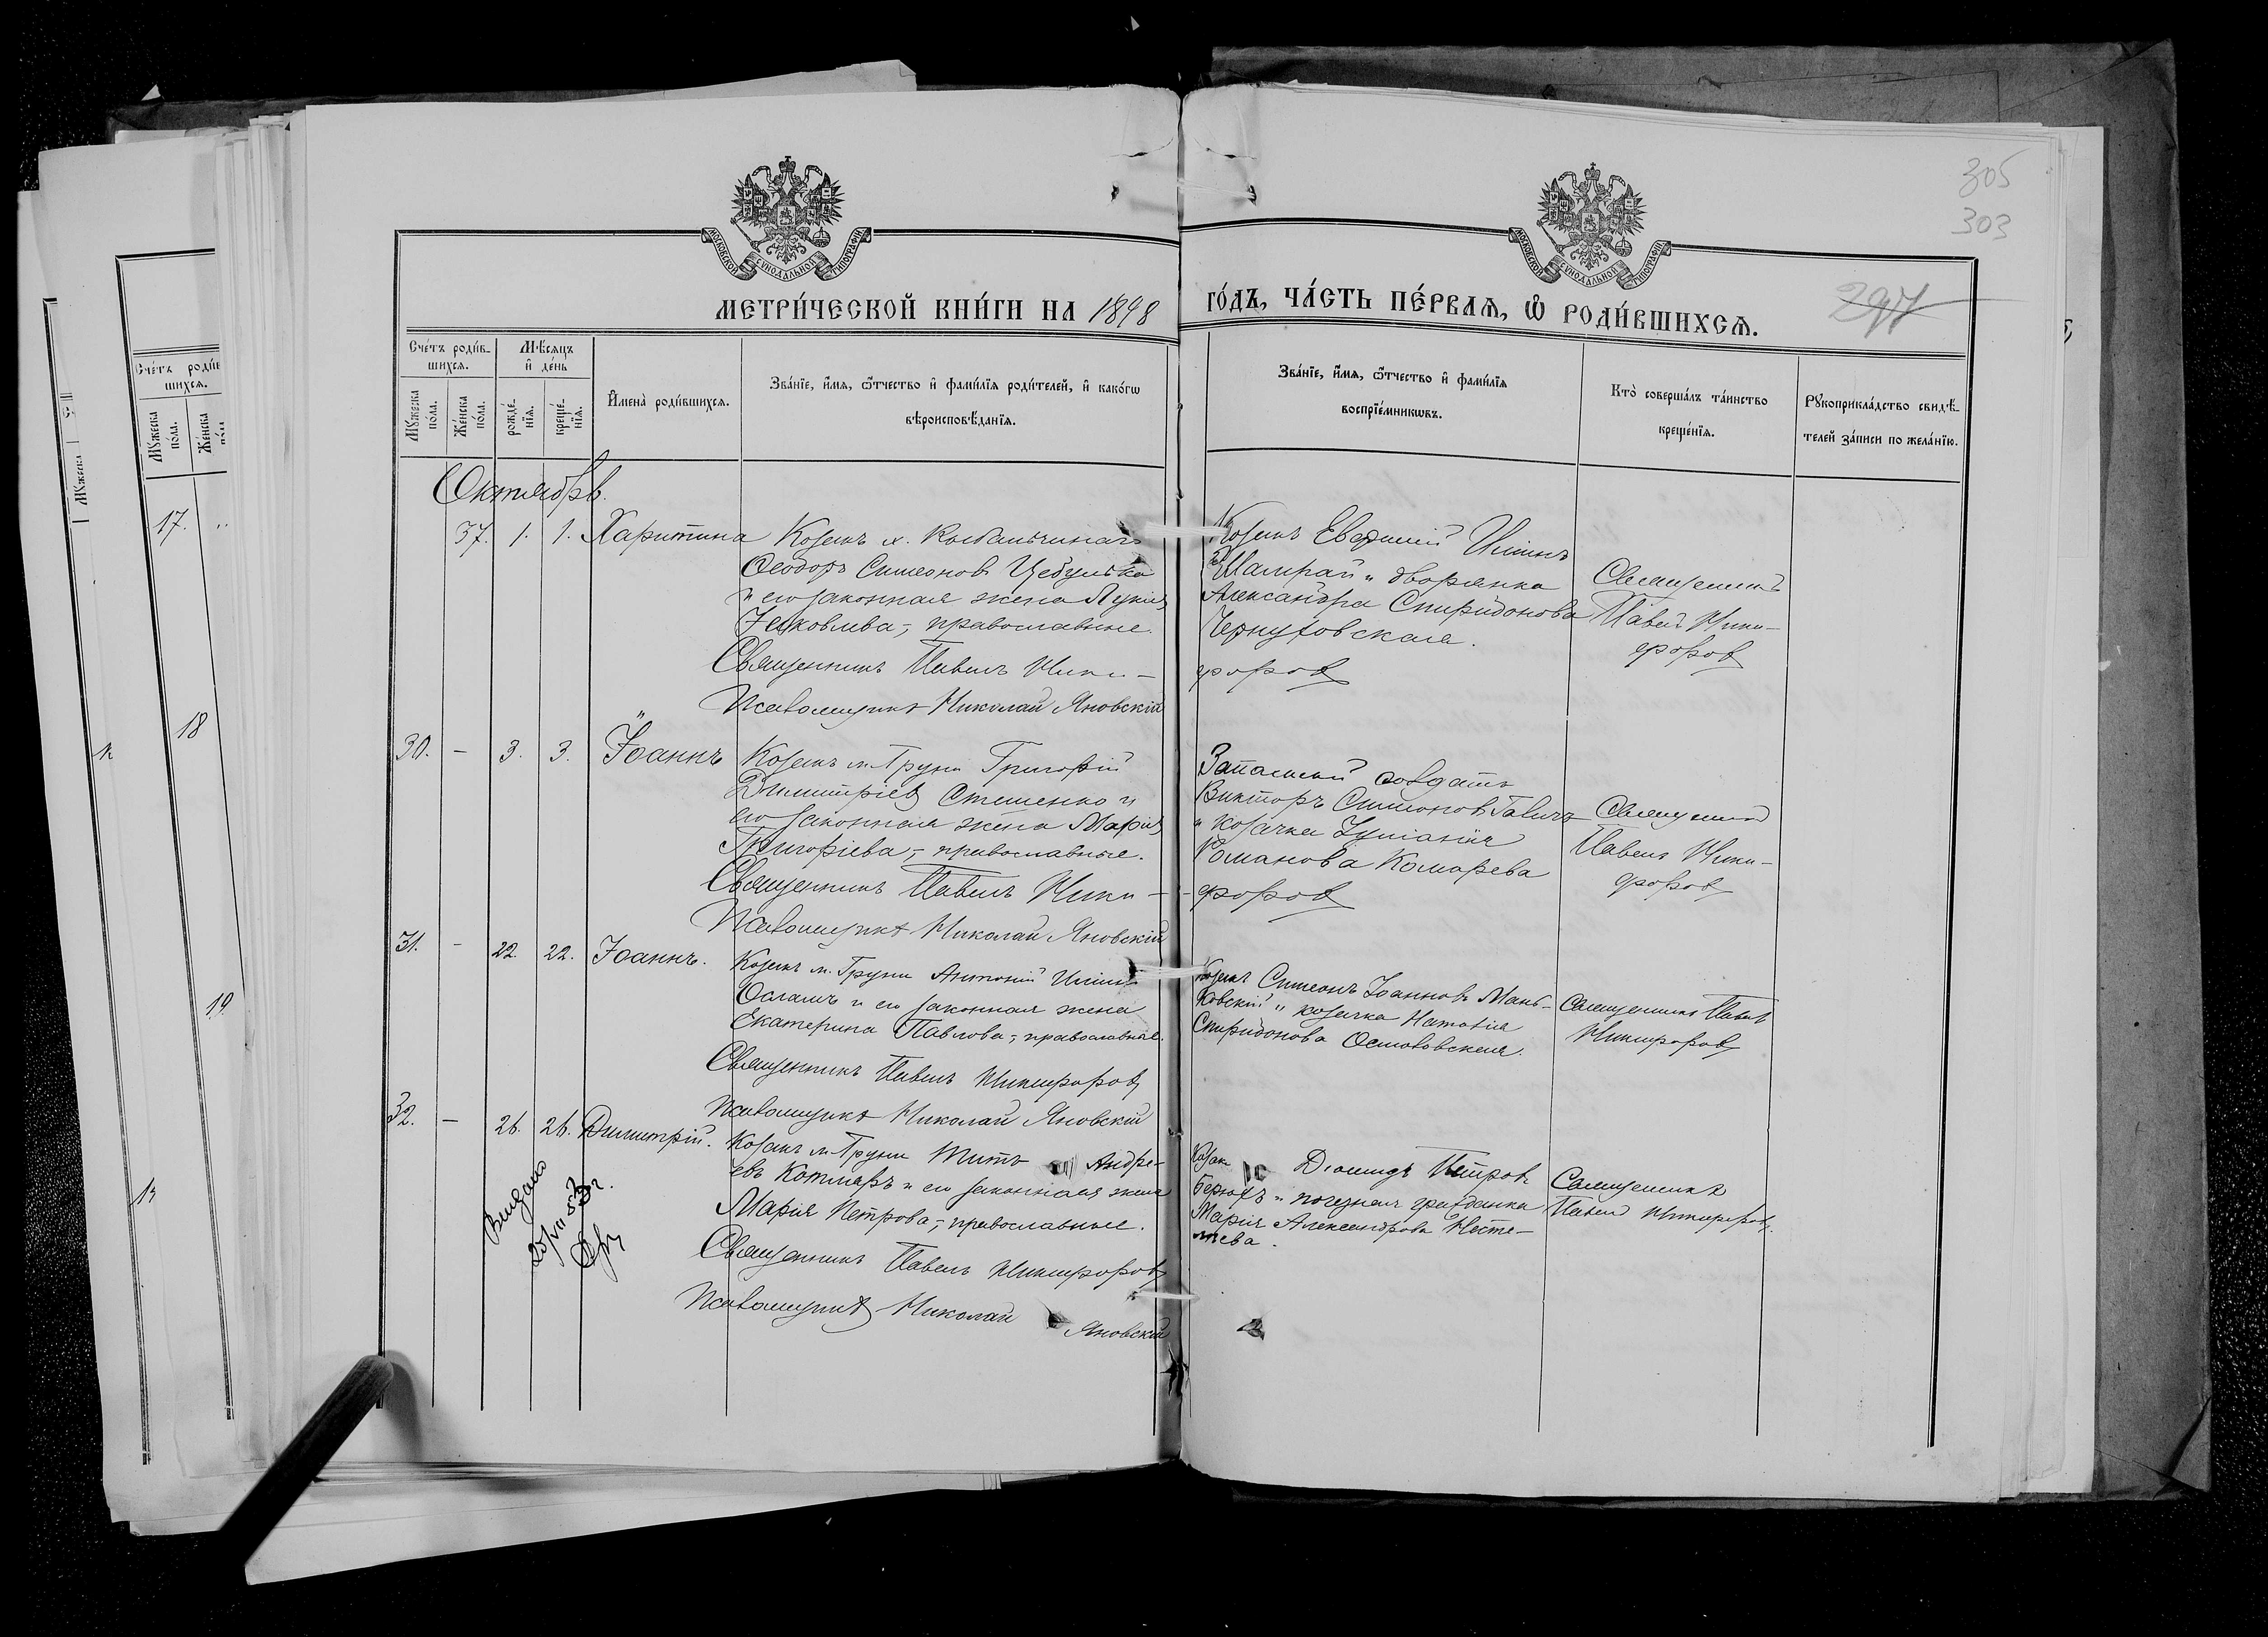 305
303
297
МОСКОВСКОЙ СѴНОДАЛЬНОЙ ТИПОГРАФІИ
МОСКОВСКОЙ СѴНОДАЛЬНОЙ ТИПОГРАФІИ
МЕТРИ́ЧЕСКОЙ КНИ́ГИ НА 1898
ГО́ДЪ, ЧА́СТЬ ПЕ́РВАѦ, Ѿ РОДИ́ВШИХСѦ.
Сче́тъ роди́в-
шихсѧ.
Мꙋжеска
по́ла.
Же́нска
по́ла.
Мѣ́сѧцъ
и҆ де́нь
рожде́-
нїѧ.
креще́-
нїѧ.
И҆мена̀ роди́вшихсѧ.
Зва́нїе, и҆́мѧ, ѻ҆́тчество и҆ фами́лїѧ роди́телей, и҆ како́гѡ
вѣроисповѣ́данїѧ.
Зва́нїе, и҆́мѧ, ѻ҆́тчество и҆ фами́лїѧ
воспрїе́мникѡвъ.
Кто̀ соверша́лъ та́инство
креще́нїѧ.
Рꙋкоприкла́дство свидѣ́-
телей за́писи по жела́нїю.
Октябрь.
37. 1. 1. Харитина
Козакъ х.
Ѳеодоръ Симеоновъ Цебулько
и его законная жена Лукія
Іаковлева, православные.
Священникъ Павелъ Ники-
форовъ
Псаломщикъ Николай Яновскій
Козакъ Евфимій
Шамрай и дворянка
Александра Спиридонова
Чернуховская.
Священникъ
Павелъ Ники-
форовъ
30. – 3. 3. Іоаннъ
Козакъ м. Груни Григорій
Димитріевъ Стешенко и
его законная жена Марія
Григоріева, православные.
Священникъ Павелъ Ники-
форовъ
Псаломщикъ Николай Яновскій
Запасный солдатъ
Викторъ Симеоновъ
и козачка Іуліанія
Романова Комарева
Священникъ
Павелъ Ники-
форовъ
31. – 22. 22. Іоаннъ.
Козакъ м. Груни Антоній
и его законная жена
Екатерина Павлова, православные.
Священникъ Павелъ Никифоровъ
Псаломщикъ Николай Яновскій
Козакъ Симеонъ Іоанновъ Мань-
ковскій и козачка Наталія
Спиридонова
Священникъ Павелъ
Никифоровъ
32. – 26. 26. Димитрій.
Козакъ м. Груни Титъ Андре-
евъ Котляръ и его законная жена
Марія Петрова, православные.
Священникъ Павелъ Никифоровъ
Псаломщикъ Николай
Яновскій
Козакъ Діомидъ Петровъ
и почетная гражданка
Марія Александрова
Священникъ
Павелъ Никифоровъ.
Выдано
Сче́тъ роди́в
шихсѧ.
Мꙋжеска
по́ла.
Же́нска
по́ла
Мꙋжеска
17.
18
19